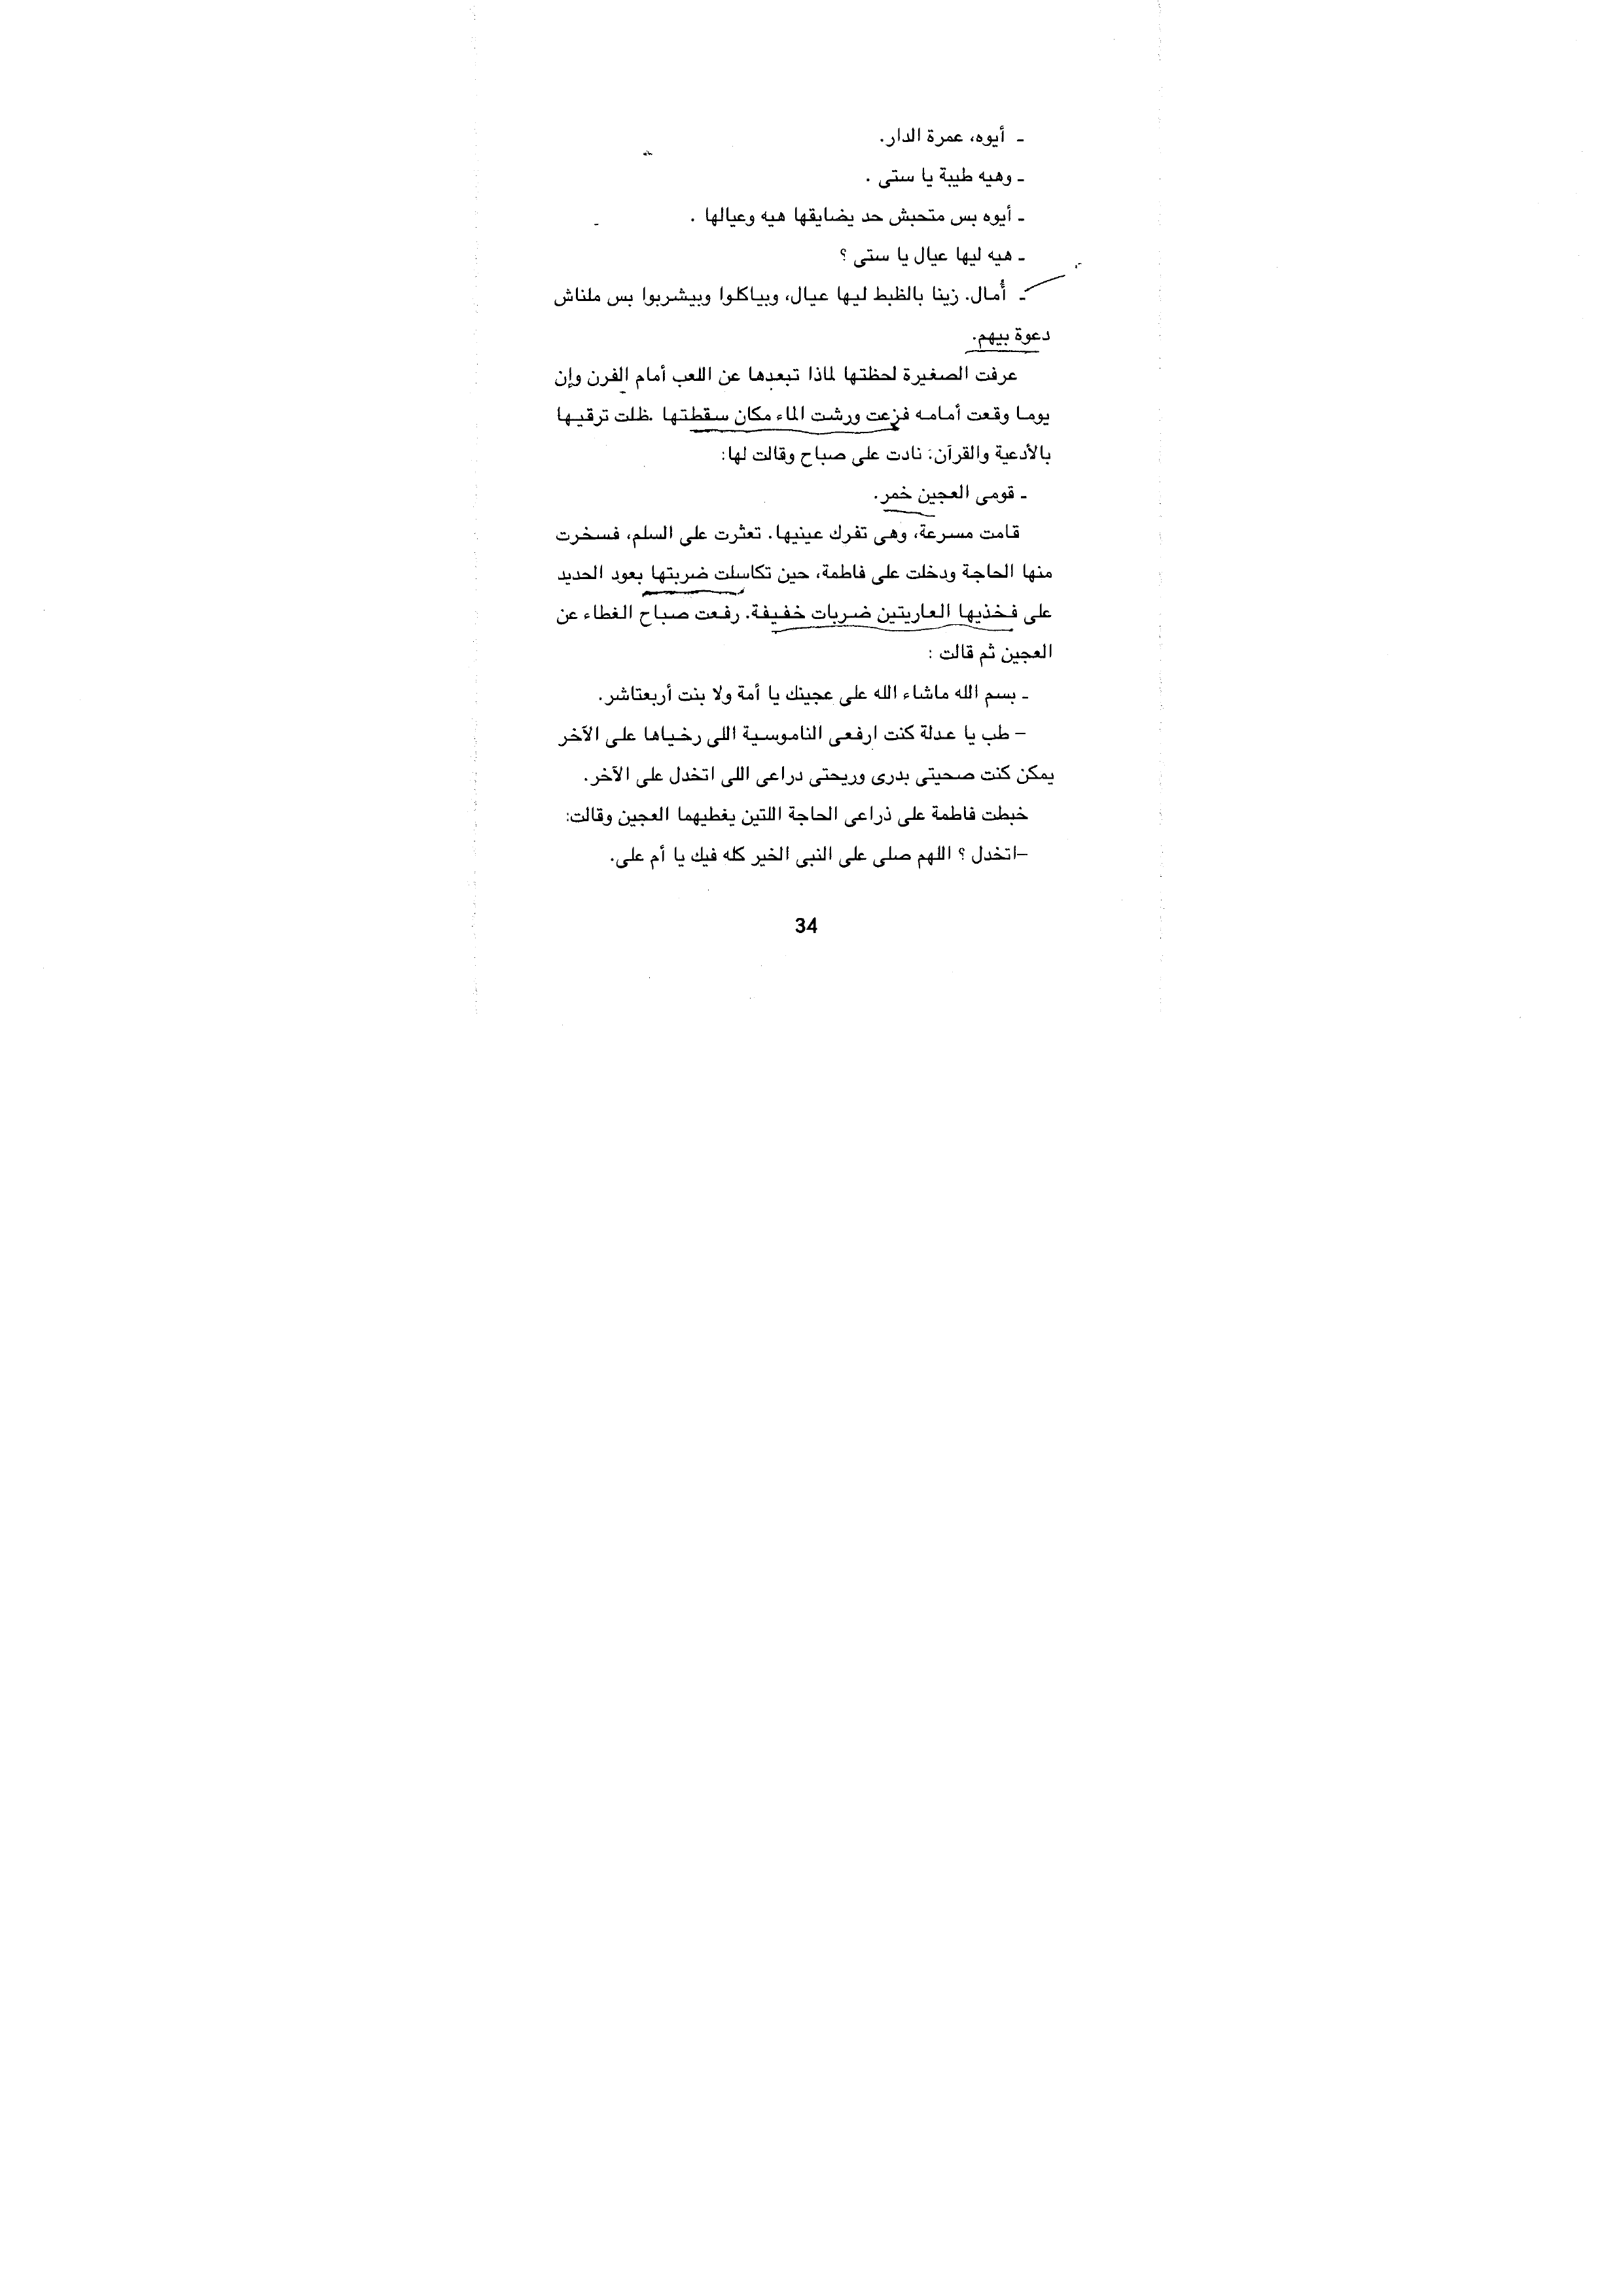 ـ أيوه، عمرة الدار.
ـ وهيه طيبة يا ستى .
ـ أيوه بس متحبش حد يضايقها هيه وعيالها .
ـ هيه ليها عيال يا ستى ؟
ـ أُمال. زينا بالظبط ليها عيال، وبياكلوا وبيشربوا بس ملناش
دعوة بيهم.
عرفت الصغيرة لحظتها لماذا تبعدها عن اللعب أمام الفرن وإن
يوما وقعت أمامه فزعت ورشت الماء مكان سقطتها .ظلت ترقيها
بالأدعية والقرآن: نادت على صباح وقالت لها:
ـ قومى العجين خمر.
قامت مسرعة، وهى تفرك عينيها. تعثرت على السلم، فسخرت
منها الحاجة ودخلت على فاطمة، حين تكاسلت ضربتها بعود الحديد
على فخذيها العاريتين ضربات خفيفة. رفعت صباح الغطاء عن
العجين ثم قالت :
ـ بسم الله ماشاء الله على عجينك يا أمة ولا بنت أربعتاشر.
– طب يا عدلة كنت ارفعى الناموسية اللى رخياها على الآخر
يمكن كنت صحيتى بدرى وريحتى دراعى اللى اتخدل على الآخر.
خبطت فاطمة على ذراعى الحاجة اللتين يغطيهما العجين وقالت:
–اتخدل ؟ اللهم صلى على النبى الخير كله فيك يا أم على.
34